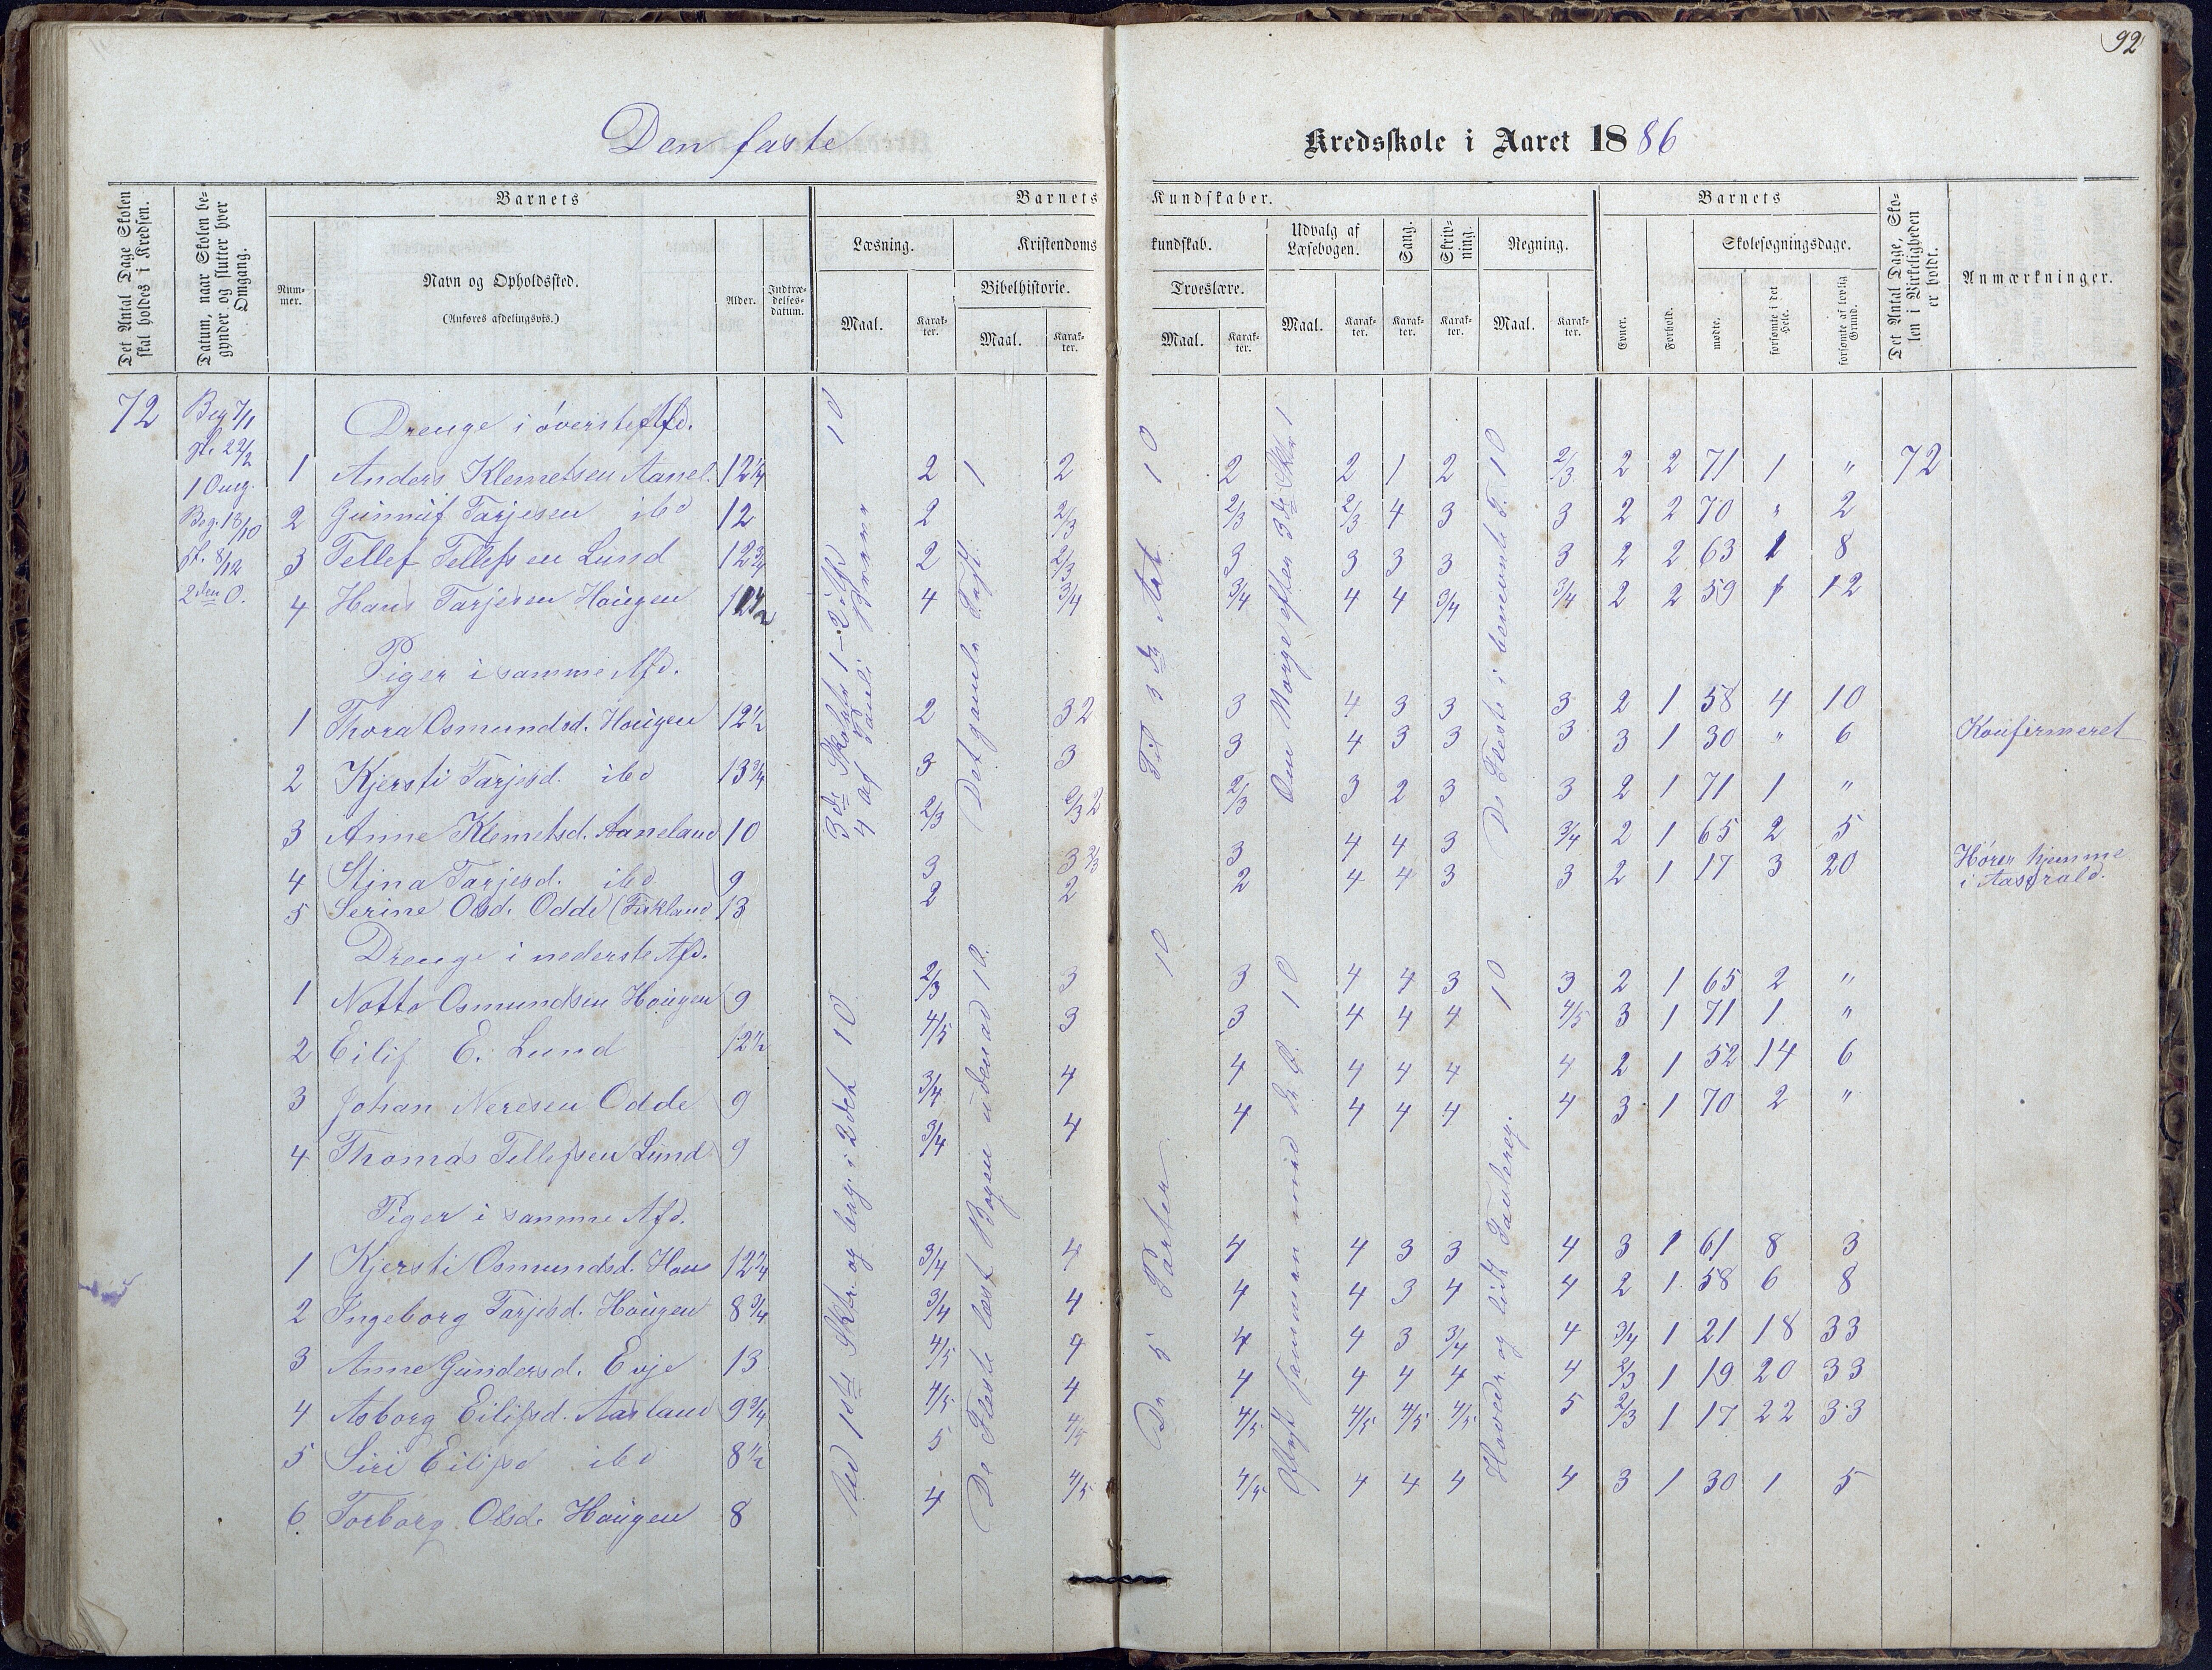 92
Den faste Kredsskole i Aaret 1886
Det Antal Dage Skolen skal holdes i Kredsen.
Datum, naar Skolen begynder og slutter hver Omgang.
Barnets
Nummer.
Navn og Opholdssted.
(Anføres afdelingsvis.)
Alder.
Indtrædelsesdatum.
Barnets Kundskaber.
Læsning.
Maal.
Karakter.
Kristendomskundskab.
Bibelhistorie.
Maal.
Karakter.
Troeslære.
Maal.
Karakter.
Udvalg af Læsebogen.
Maal.
Karakter.
Sang.
Karakter.
Skrivning.
Karakter.
Regning.
Maal.
Karakter.
Barnets
Evner.
Forhold.
Skolesøgningsdage.
mødte.
forsømte i det Hele.
forsømte af lovlig Grund.
Det Antal Dage, Skolen i Virkeligheden er holdt.
Anmærkninger.
72
Beg 7/1
sl. 22/2
1 Omg.
Beg. 18/10
sl. 8/12
2den O.
Drenge i øverste Afd.
1 Anders Klemetsen Aanel. 12 1/4 2 1 2 2 2 1 2 2/3 2 2 71 1 " 72
2 Gunnuf Tarjesen ibd 12 2 2/3 2/3 2/3 4 3 3 2 2 70 " 2
3 Tellef Tellefsen Lund 12 3/4 2 2/3 3 3 3 3 3 2 2 63 1 8
4 Hans Tarjesen Haugen 4 3/4 3/4 4 4 3/4 3/4 2 2 59 1 12
Piger i samme Afd.
1 Thora Osmundsd. Haugen 12 1/2 2 3 2 3 4 3 3 3 2 1 58 4 10
2 Kjersti Tarjesd. ibd 13 3/4 3 3 3 4 3 3 3 3 1 30 " 6 Konfirmeret
3 Anne Klemetsd. Aaneland 10 2/3 2/3 2 2/3 3 2 3 3 2 1 71 1 "
4 Stina Tarjesd. ibd 9 3 3 2/3 3 4 4 3 3/4 2 1 65 2 5
5 Serine Olsd. Odde 13 2 2 2 4 4 3 3 2 1 17 3 20 Hører hjemme
i
Drenge i nederste Afd.
1 Notto Osmundsen Haugen 9 2/3 3 3 4 4 3 3 2 1 65 2 "
2 Eilif E. Lund 12 1/2 4/5 3 3 4 4 4 4/5 3 1 71 1 "
3 Johan Neresen Odde 9 3/4 4 4 4 4 4 4 2 1 52 14 6
4 Thomas Tellefsen Lund 9 3/4 4 4 4 4 4 4 3 1 70 2 "
Piger i samme Afd.
1 Kjersti Osmundsd. Hau 12 1/4 3/4 4 4 4 3 3 4 3 1 61 8 3
2 Ingeborg Tarjesd. Haugen 8 3/4 3/4 4 4 4 3 4 4 2 1 58 6 8
3 Anne Gundersd. Evje 13 4/5 4 4 4 3 3/4 4 3/4 1 21 18 33
4 Asborg Eilifsd. Aasland 9 3/4 4/5 4 4 4 4 4 4 2/3 1 19 20 33
5 Siri Eilifsd ibd 8 1/2 5 4/5 4/5 4/5 4/5 4/5 5 2/3 1 17 22 33
6 Torborg Olsd. Haugen 8 4 4/5 4/5 4 4 4 4 3 1 30 1 5
10
10
10
10
10
10
10